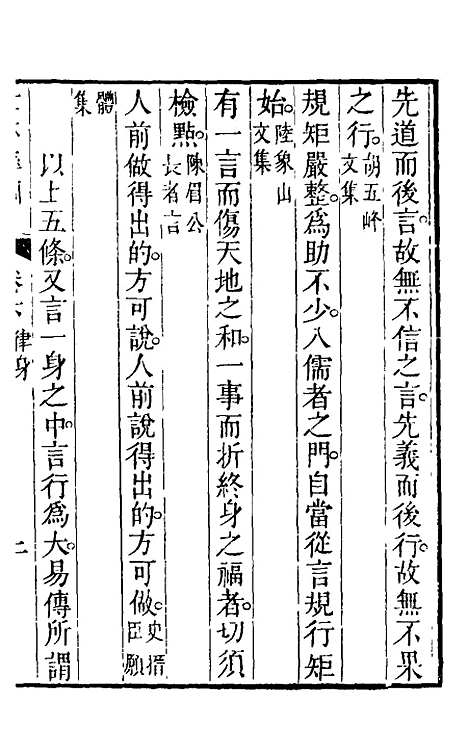 先道而後言。故無不信之言。先義而後行。故無不果
之行。胡五峰文集
規矩嚴整。爲助不少。入儒者之門。自當從言規行矩
始。陸象山文集
有一言而傷天地之和。一事而折終身之福者。切須
檢點。陳眉公長者言
人前做得出的。方可說。人前說得出的。方可做。史搢臣願
體集
以上五條。又言一身之中。言行爲大。易傳所謂
律身